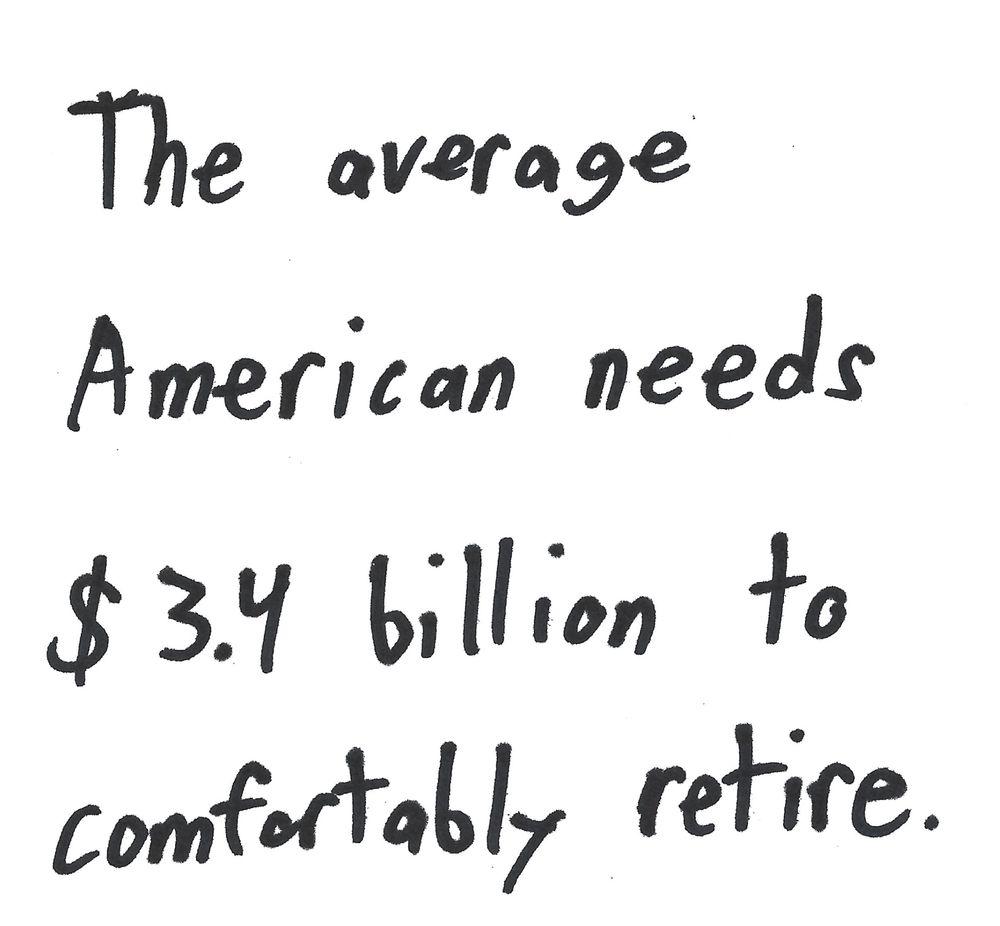 The average
American needs
$3.4 billion to
comfortably retire.